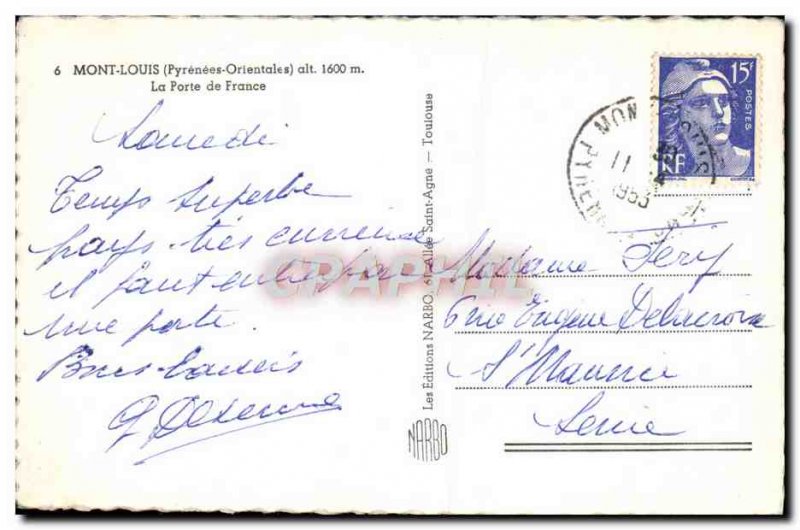 6 MONT-LOUIS (Pyrénées-Orientales) alt. 1600 m.
La Porte de France
Samedi
Temps superbe
pays très curieux
il faut entrer par
une porte.
Bons baisers
Les Editions NARBO, 61 Allée Saint-Agne — Toulouse
NARBO
15F
POSTES
RF
MONT-LOUIS
11
1953
Madame Séry
6 rue Eugène Delacroix
St Maurice
Seine